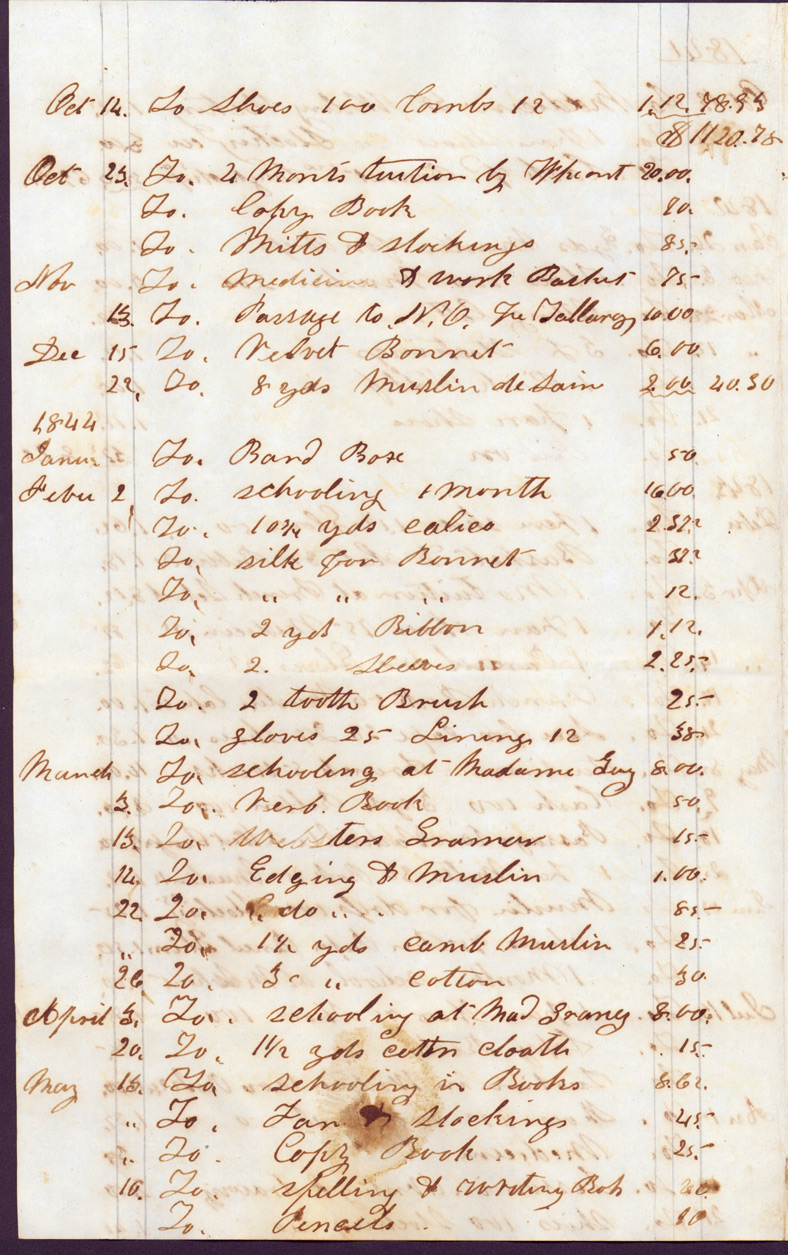 Oct 14. To Shoes 100 Combs 12 1.12.
$1120.78
Oct 23. To. 2 tuition by 20.00.
To. Copy Book
To. Mitts & stockings 85-
Nov To. Medicin & work Basket 75-
13. To. Passage to N.O. 10.00
Dec 15 To. Velvet Bonnet 6.00
22, To. 8 yds Muslin de Lain 2.00 40.30
1844
Janu To. Band Box 50.
Febu 2 To. schooling 1 month 16.00
To. yds calico
To, silk for Bonnet
To, " " " 12.
To, 2 yds Ribbon 1.12.
To, 2. Sleeves 2.25-
To. 2 tooth Brush 25-
To, gloves 25 Lining 12 38-
March To, schooling at Madame 8.00.
3. To. Verb. Book 50.
13. To, Websters Gramar 15-
14. To, Edging & Muslin 1.00.
22. To, do " " 85-
" To, 1½ yds camb Muslin 25-
26 To. 3 " cotton 30.
April 3. To. schooling at Mad 8.00.
20. To, 1½ yds cottn cloath 15-
May 15. To schooling in Books 8.62.
" To, Fan & Stockings 45-
" To. Copy Book 25-
16. To. spelling & writing Bok
To. Pencils. 10